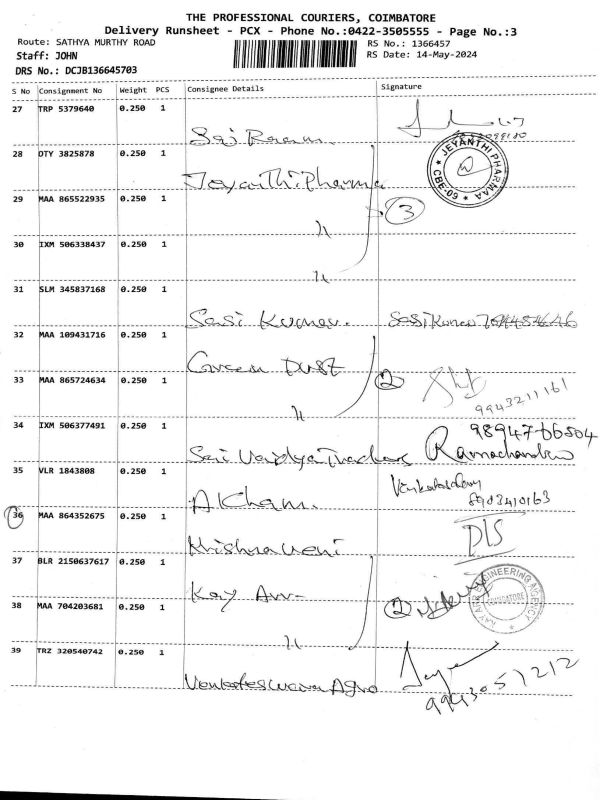 THE PROFESSIONAL COURIERS, COIMBATORE
Delivery Runsheet - PCX - Phone No.:0422-3505555 - Page No.:3
Route: SATHYA MURTHY ROAD RS No.: 1366457
Staff: JOHN RS Date: 14-May-2024
DRS No.: DCJB136645703
S No Consignment No Weight PCS Consignee Details Signature
27 TRP 5379640 0.250 1
Sai Raam.
28 DTY 3825878 0.250 1
Jeyanthi Pharma
JEYANTHI PHARMAA
CBE-09
29 MAA 865522935 0.250 1
3
〃
30 IXM 506338437 0.250 1
〃
31 SLM 345837168 0.250 1
Sasi Kumar. Sasikumar
32 MAA 109431716 0.250 1
Green Dust
33 MAA 865724634 0.250 1
2
9943211161
〃
34 IXM 506377491 0.250 1
98947-66504
Sri Vaidya Traders Ramachandran
35 VLR 1843808 0.250 1
8903410163
A Cham.
36 MAA 864352675 0.250 1
D/S
Krishnaveni
37 BLR 2150637617 0.250 1
Kay Arr-
ENGINEERING AGENCY
COIMBATORE
38 MAA 704203681 0.250 1
2
〃
39 TRZ 320540742 0.250 1
Venkateswara Agro
9943051212